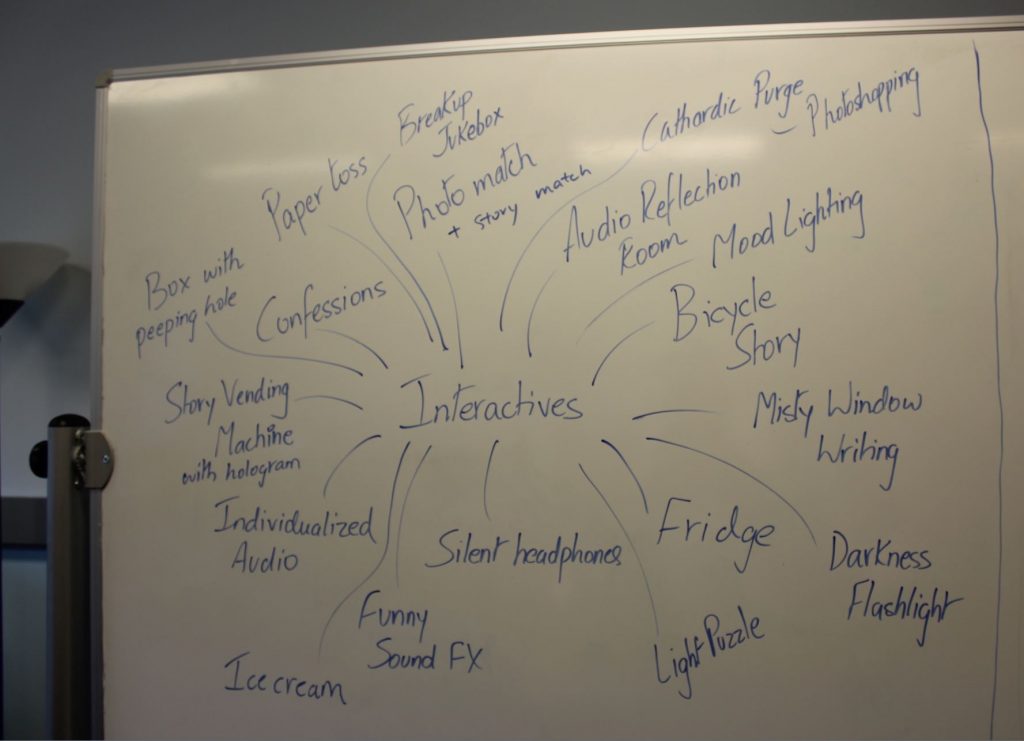 Breakup
Jukebox
Cathardic Purge
– Photoshopping
Paper toss
Photo match
+ story match
Audio Reflection
Room
Mood Lighting
Box with
peeping hole
Confessions
Bicycle
Story
Story Vending
Machine
with hologram
Interactives
Misty Window
Writing
Individualized
Audio
Silent headphones
Fridge
Darkness
Flashlight
Funny
Sound FX
Light Puzzle
Ice cream